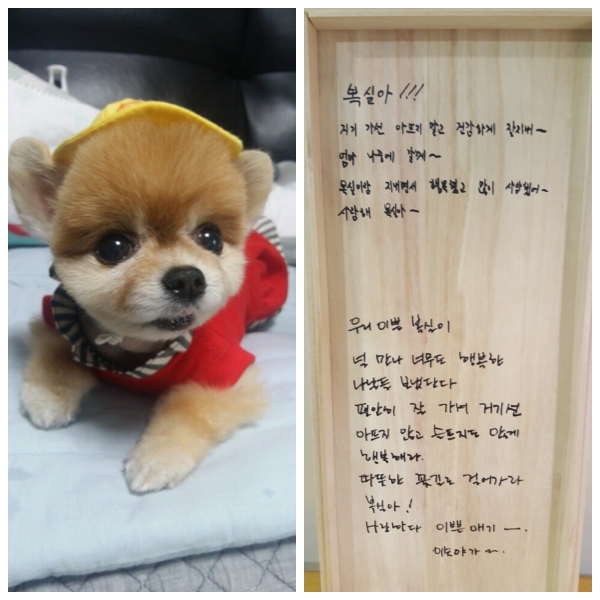 복실아!!!
저기 가선 아프지 말고 건강하게 잘지내~
엄마 나중에 갈께~
복실이랑 지내면서 행복했고 많이 사랑했어~
사랑해 복실아~
우리 이쁜 복실이
널 만나 너무도 행복한
나날들 보냈단다
편안히 잘 가녀 거기선
아프지 않고 슬프지도 않게
행복해라.
따뜻한 꽃길로 걸어가라
복실아!
사랑한다 이쁜 애기 ~.